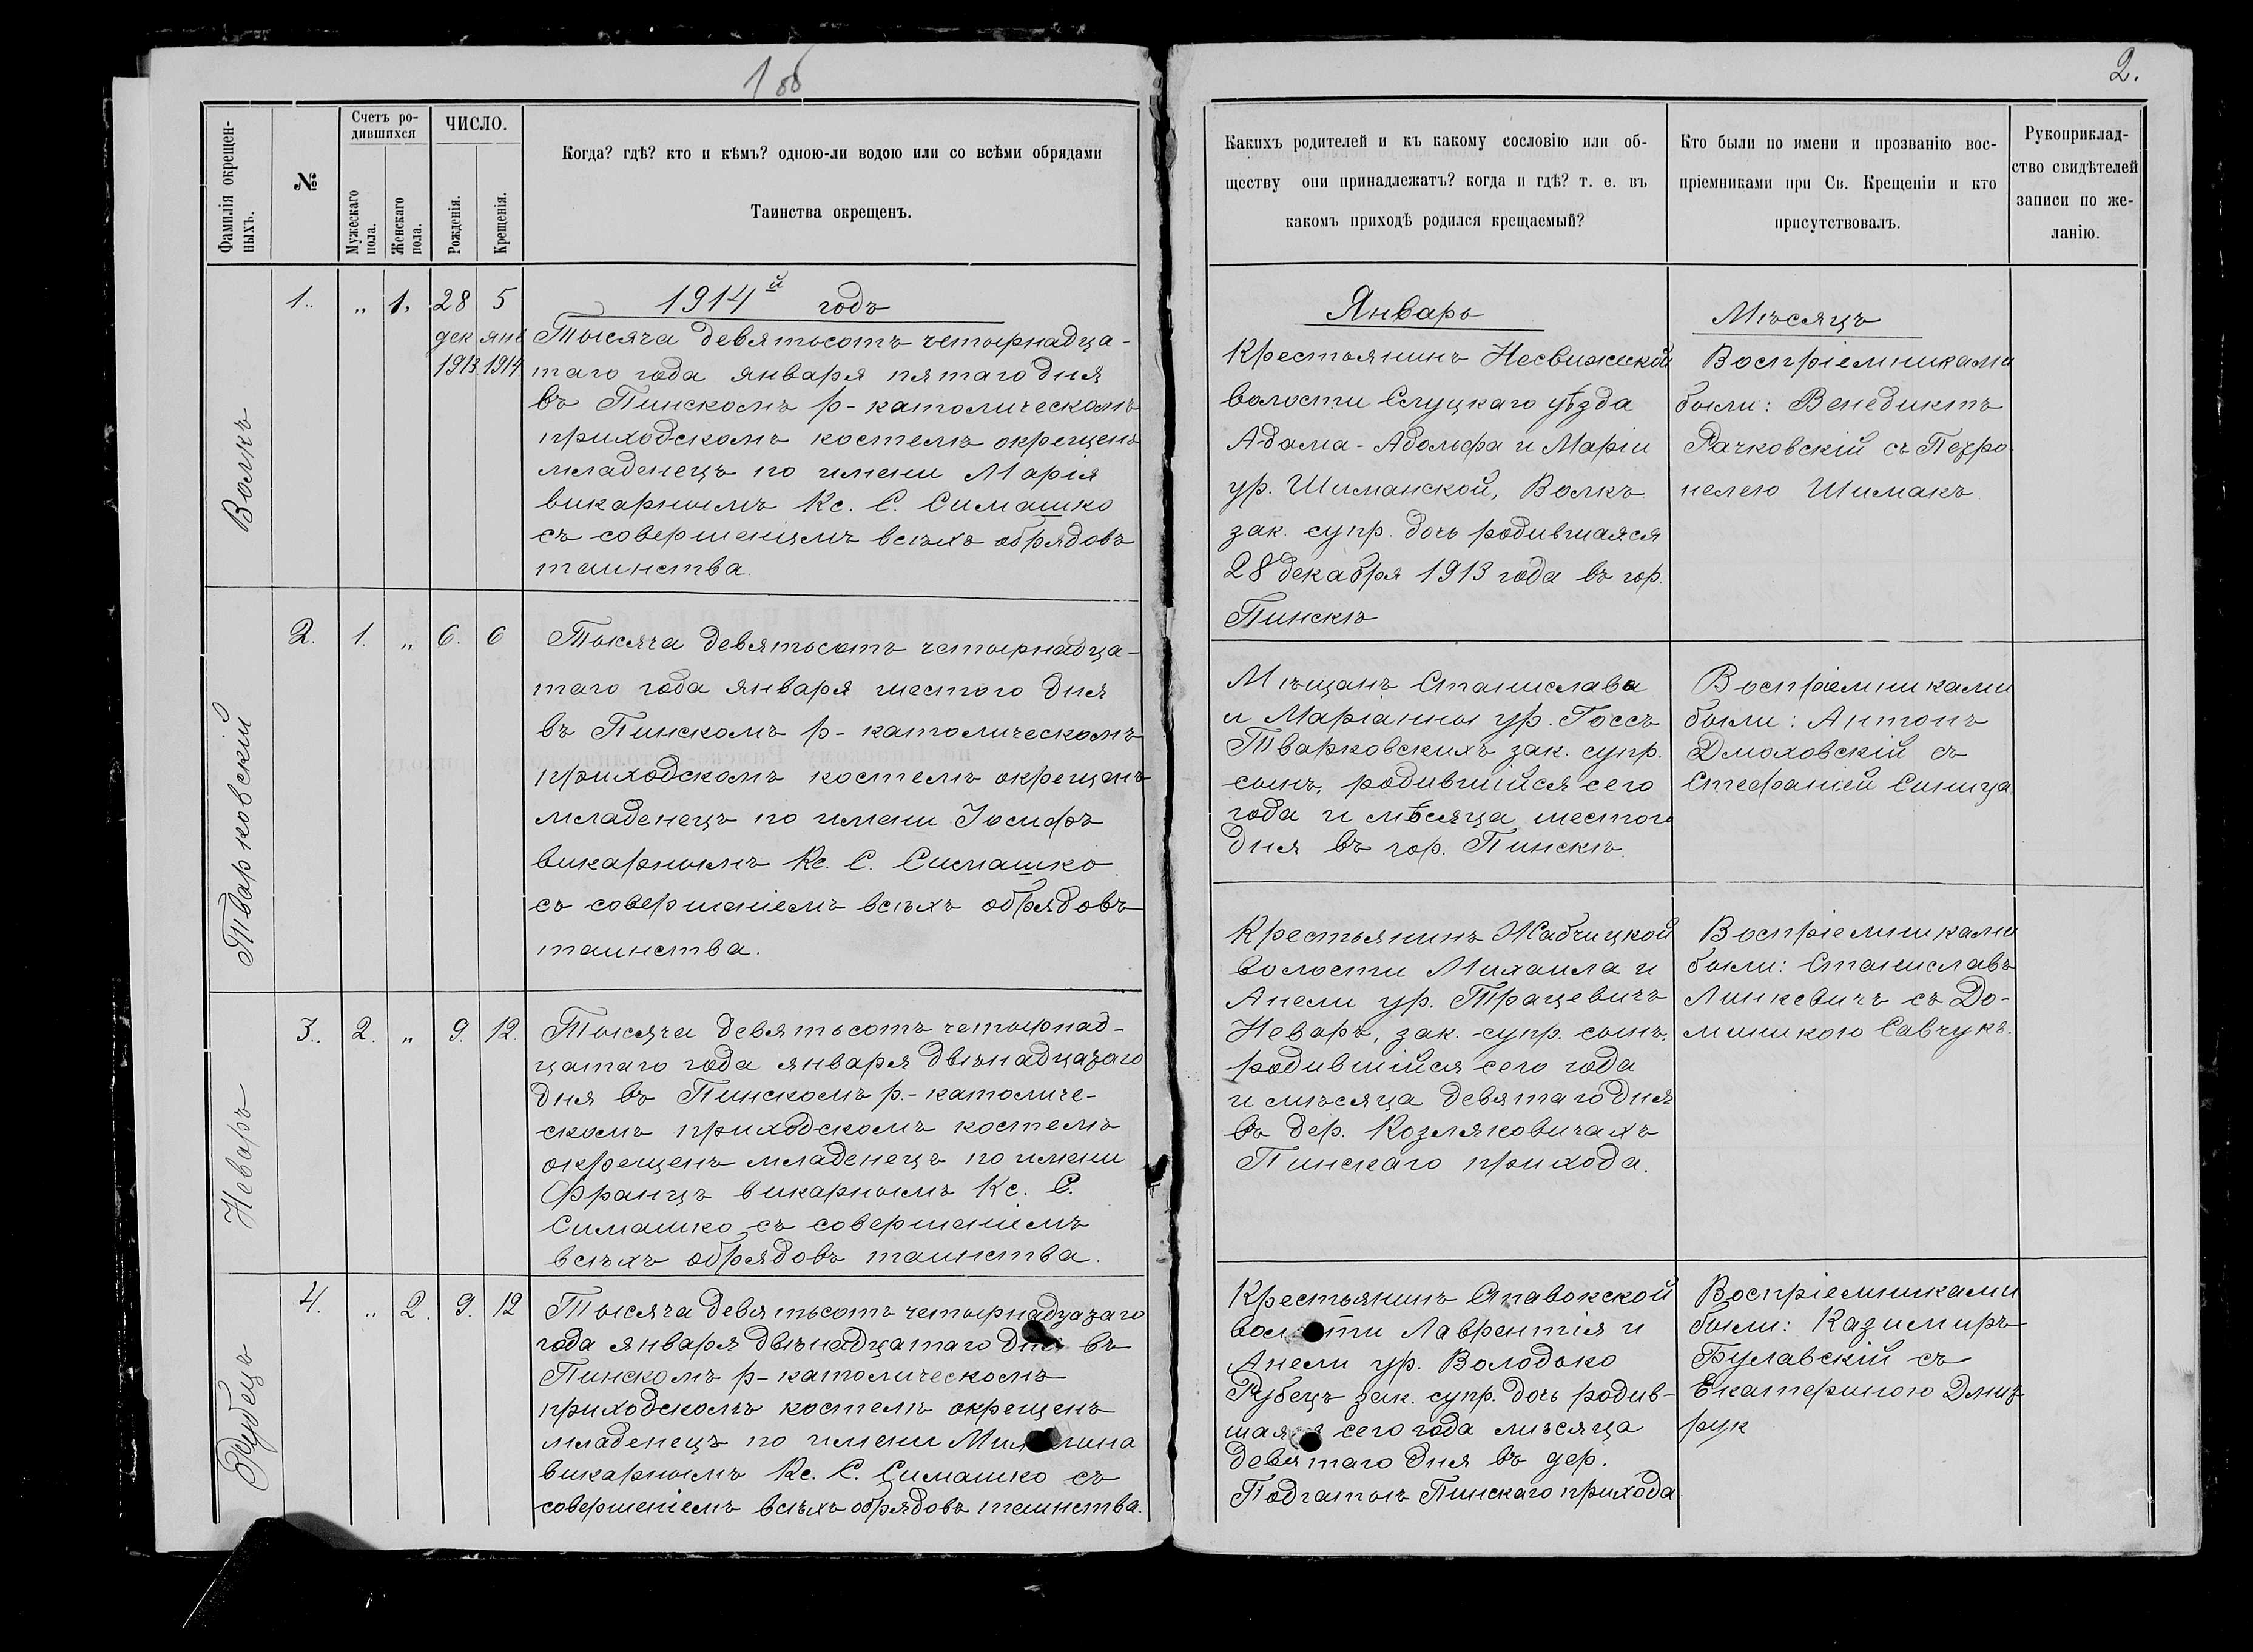 1 об
2.
Фамилія окрещен-
ныхъ.
№
Счетъ ро-
дившихся
Мужескаго
пола.
Женскаго
пола.
ЧИСЛО.
Рожденія.
Крещенія.
Когда? гдѣ? кто и кѣмъ? одною-ли водою или со всѣми обрядами
Таинства окрещенъ.
Какихъ родителей и къ какому сословію или об-
ществу они принадлежатъ? когда и гдѣ? т. е. въ
какомъ приходѣ родился крещаемый?
Кто были по имени и прозванію вос-
пріемниками при Св. Крещеніи и кто
присутствовалъ.
Рукоприклад-
ство свидѣтелей
записи по же-
ланію.
Волкъ
1. „ 1. 28 5
дек янв
1913 1914
1914й годъ
Тысяча девятьсотъ четырнадца-
таго года января пятаго дня
въ Пинскомъ р-католическомъ
приходскомъ костелѣ окрещенъ
младенецъ по имени Марія
викарнымъ Кс. С. Симашко
съ совершеніемъ всѣхъ обрядовъ
таинства.
Январь
Крестьянинъ Несвижской
волости Слуцкаго уѣзда
Адама-Адольфа и Маріи
ур. Шиманской, Волкъ
зак. супр. дочь родившаяся
28 декабря 1913 года въ гор.
Пинскѣ
Мѣсяцъ
Воспріемниками
были: Венедиктъ
Рачковскій съ Петро-
нелею Шимакъ.
Тварковскій
2. 1. „ 6. 6
Тысяча девятьсотъ четырнадца-
таго года января шестого дня
въ Пинскомъ р-католическомъ
приходскомъ костелѣ окрещенъ
младенецъ по имени Іосифъ
викарнымъ Кс. С. Симашко
съ совершеніемъ всѣхъ обрядовъ
таинства.
Мѣщанъ Станислава
и Маріанны ур. Госсъ
Тварковскихъ зак. супр.
сынъ, родившійся сего
года и мѣсяца шестого
дня въ гор. Пинскѣ.
Воспріемниками
были: Антонъ
Дмоховскій съ
Стефаніей Синица
Неваръ
3. 2. „ 9. 12.
Тысяча девятьсотъ четырнад-
цатаго года января двѣнадцатаго
дня въ Пинскомъ р.-католиче-
скомъ приходскомъ костелѣ
окрещенъ младенецъ по имени
Францъ викарнымъ Кс. С.
Симашко съ совершеніемъ
всѣхъ обрядовъ таинства.
Крестьянинъ Жабчицкой
волости Михаила и
Анели ур. Трацевичъ
Неваръ, зак. супр. сынъ,
родившійся сего года
и мѣсяца девятаго дня
въ дер. Козляковичахъ
Пинскаго прихода.
Воспріемниками
были: Станиславъ
Линкевичъ съ До-
миникою Савчукъ.
Рубецъ
4. „ 2. 9. 12
Тысяча девятьсотъ четырнадцатаго
года января двѣнадцатаго дня въ
Пинскомъ р-католическомъ
приходскомъ костелѣ окрещенъ
младенецъ по имени
викарнымъ Кс. С. Симашко съ
совершеніемъ всѣхъ обрядовъ таинства.
Крестьянинъ Ставокской
волости Лаврентія и
Анели ур. Володько
Рубецъ зак. супр. дочь родив-
шаяся сего года мѣсяца
девятаго дня въ дер.
Пинскаго прихода
Воспріемниками
были: Казимиръ
Булавскій съ
Екатериною Дмит-
рук